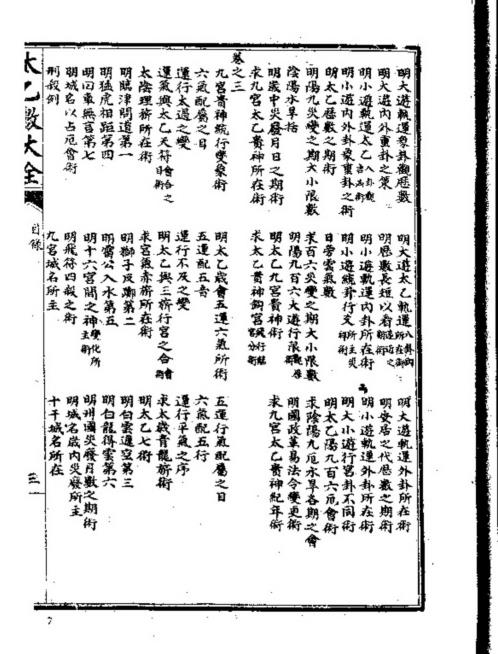 明大遊軌運彖卦觀歷數
明大遊太乙軌運所在術
明大遊軌運外卦所在術
明大遊內外重卦之策
明歷數長短以看
明安居之代歷數之期術
明小遊軌運太乙
明小遊軌運內卦所在術
明小遊軌運外卦所在術
明小遊內外卦彖重卦之術
明小遊統卦行爻
明大小遊行宮卦不同術
明太乙歷數之期術
日旁雲氣數
明太乙陽九百六厄會術
明陽九災變之期大小限數
求百六災變之期大小限數
求陰陽九厄水旱各期之會
陰陽水旱括
明陽九百六大遊行限
明國政革易法令變更術
明歲中災發月日之期術
明太乙九宮貴神術
求九宮太乙貴神紀年術
求九宮太乙貴神所在術
求太乙貴神
卷之三
九宮貴神統行變象術
明太乙歲會五運六氣所術
五運行氣配屬之日
六氣配屬之日
五運配五音
六氣配五行
運行太過之變
運行不及之變
運行平氣之序
運氣與太乙天符
明太乙與三旂行宮之合
明太乙七術
太陰理旂所在術
求宮氣赤旂所在術
求太歲青龍旂術
明臨津問道第一
明獅子反擲第二
明白雲邐空第三
明猛虎相距第四
明雷公入水第五
明白龍得雲第六
明回車無言第七
明十六宮間之神
明州國災發月數之期術
明城名以占厄會術
明飛符四殺之術
明城名歲內災發所主
刑殺例
九宮城名所主
十干城名所在
太乙數大全
目錄
三一
7